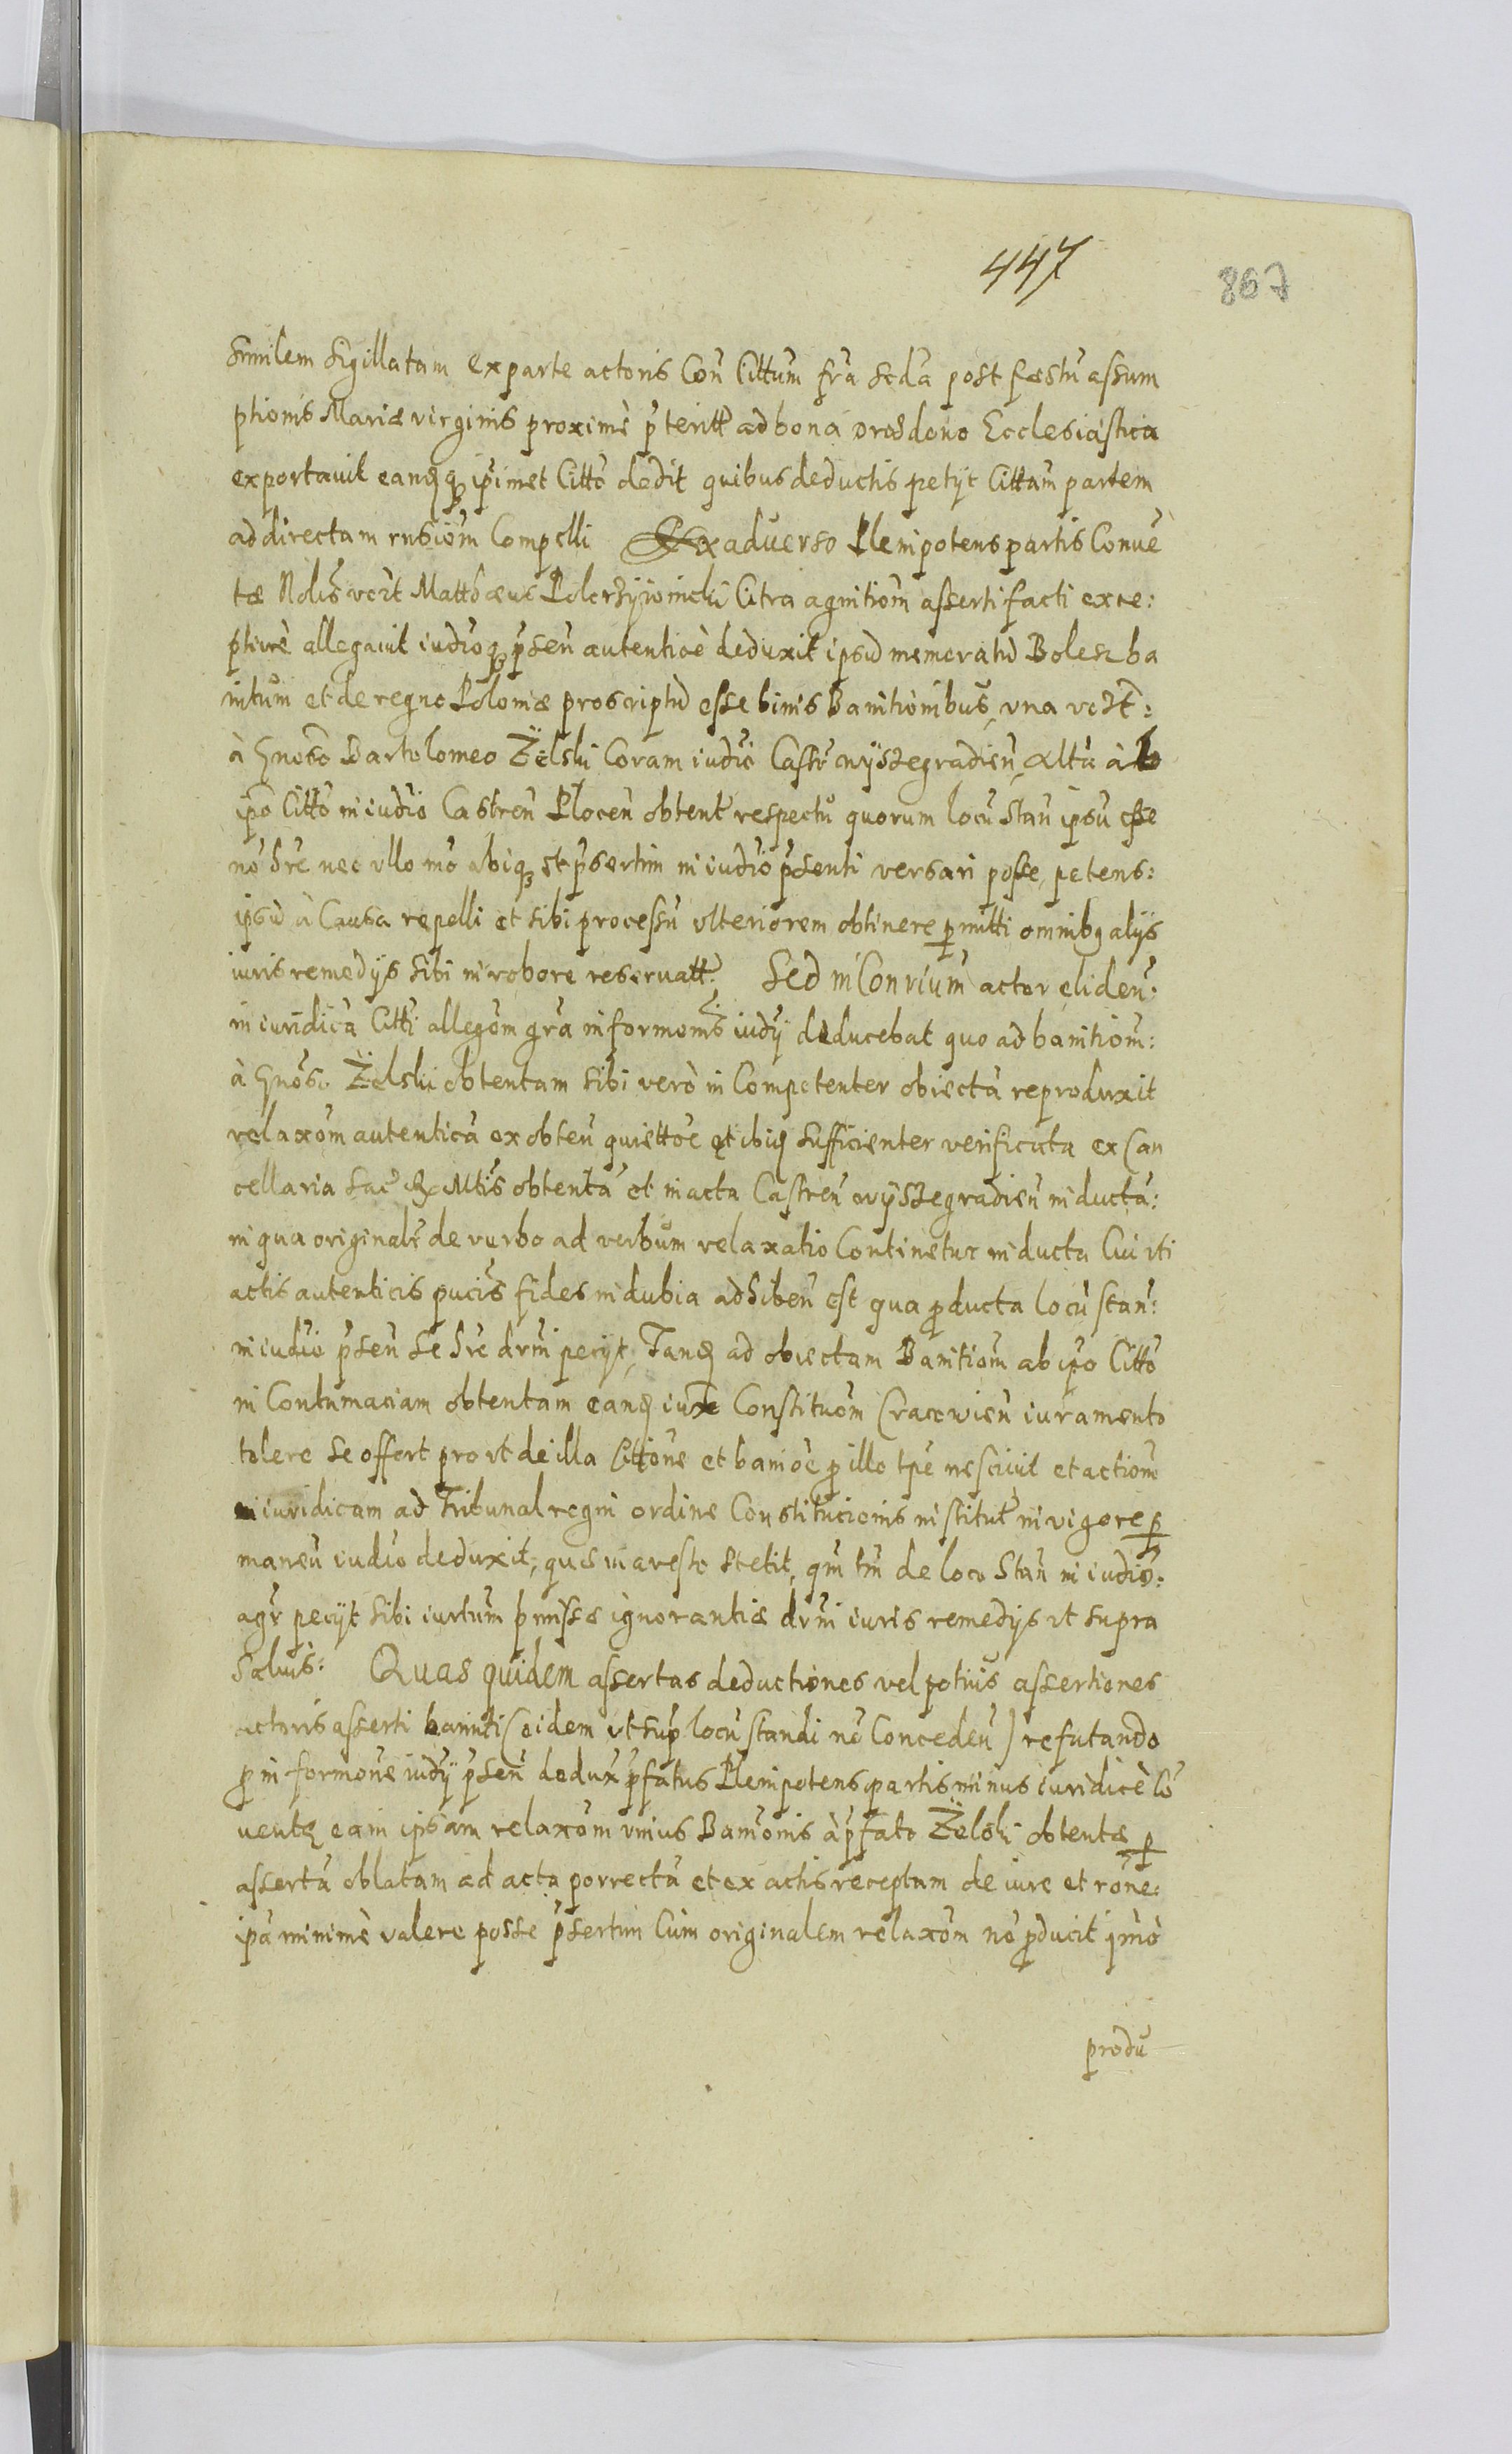 447
867
similem sigillatam ex parte actoris Con Cittum fra scda post festu assum
ptionis Mariæ virginis proximè pteritt ad bona Drozdono Ecclesiastica
exportavit eandqz ipimet Citto dedit quibus deductis petÿt Cittam partem
ad directam rnsiom Compelli Ex aduerso Plenipotens partis Conue
tæ Nolis vert Matthæus Citra agnitiom asserti facti exce:
ptiuè allegavit iudioqz psen autenticè deduxit ipsu memoratu Bolesz ba
nitum et de regno Poloniæ proscriptu esse binis Banitionibus, una vozt:
à Gnoso Bartolomeo Żelski Coram iudio Castr wyszegradien, Alta àb
ipo Citto in iudio Castren Plocen obtent respectu quorum locu stan ipsu esse
no hre nec ullo mo abiqz et psertim in iudio psenti versari posse, petens:
ipsu à Causa repelli et sibi processu ulteriorem obtinere pmitti omnibq alÿs
iuris remedÿs sibi in robore reservatt. Sed in Conrium actor eliden:
in iuridica Citti allegom gra informoms iudÿ deducebat quo ad banitiom:
à Gnoso Żelski obtentam sibi verò in Competenter obiecta reproduxit
relaxom autentica ex obten quiettoe et ibiq sufficienter verificata ex Can
cellaria Sac R Mtis obtenta et in acta Castren wyszegradien inducta:
in qua originalr de verbo ad verbum relaxatio Continetur inducta Cui uti
actis autenticis pucis fides indubia adhiben est qua pducta locu stan:
in iudio psen se hre drni peciÿt, Tandq ad obiectam Banitiom ab ipo Citto
in Contumaciam obtentam eandq iuxe Constituom Cracowien iuramento
tolere se offert pro ut de illa Cittione et banioe p illo tpe nescivit et actiom
iniuridicam ad Tribunal regni ordine Constitucionis institut in vigore p
manen iudio deduxit, que in aresto stetit, qm tm de loco stan in iudio:
agr peciÿt sibi iurtum pmissæ ignorantiæ drni iuris remedÿs ut supra
salvis: Quas quidem assertas deductiones vel potius assertiones
actoris asserti banniti (eidem ut sup locu standi no Conceden) refutando
p informone iudÿ psen dedux pfatus Plenipotens partis minus iuridicè Co
uentq eam ipsam relaxom unius Banionis à pfato Żelski obtentæ p
asserta oblatam ad acta porrecta et ex actis receptam de iure et rone:
ipa minimè valere posse psertim Cum originalem relaxom no pducit imò
produ